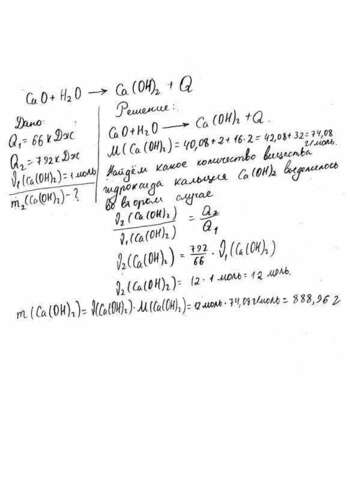 CaO + H₂O → Ca(OH)₂ + Q
Дано:
Q₁ = 66 кДж
Q₂ = 792 кДж
ν₁(Ca(OH)₂) = 1 моль
m₂(Ca(OH)₂) - ?
Решение:
CaO + H₂O → Ca(OH)₂ + Q.
M(Ca(OH)₂) = 40,08 + 2 + 16·2 = 42,08 + 32 = 74,08 г/моль.
Найдём какое количество вещества
гидроксида кальция Ca(OH)₂ выделилось
во втором случае
ν₂(Ca(OH)₂) / ν₁(Ca(OH)₂) = Q₂ / Q₁
ν₂(Ca(OH)₂) = 792/66 · ν₁(Ca(OH)₂)
ν₂(Ca(OH)₂) = 12 · 1 моль = 12 моль.
m(Ca(OH)₂) = ν(Ca(OH)₂) · M(Ca(OH)₂) = 12 моль · 74,08 г/моль = 888,96 г